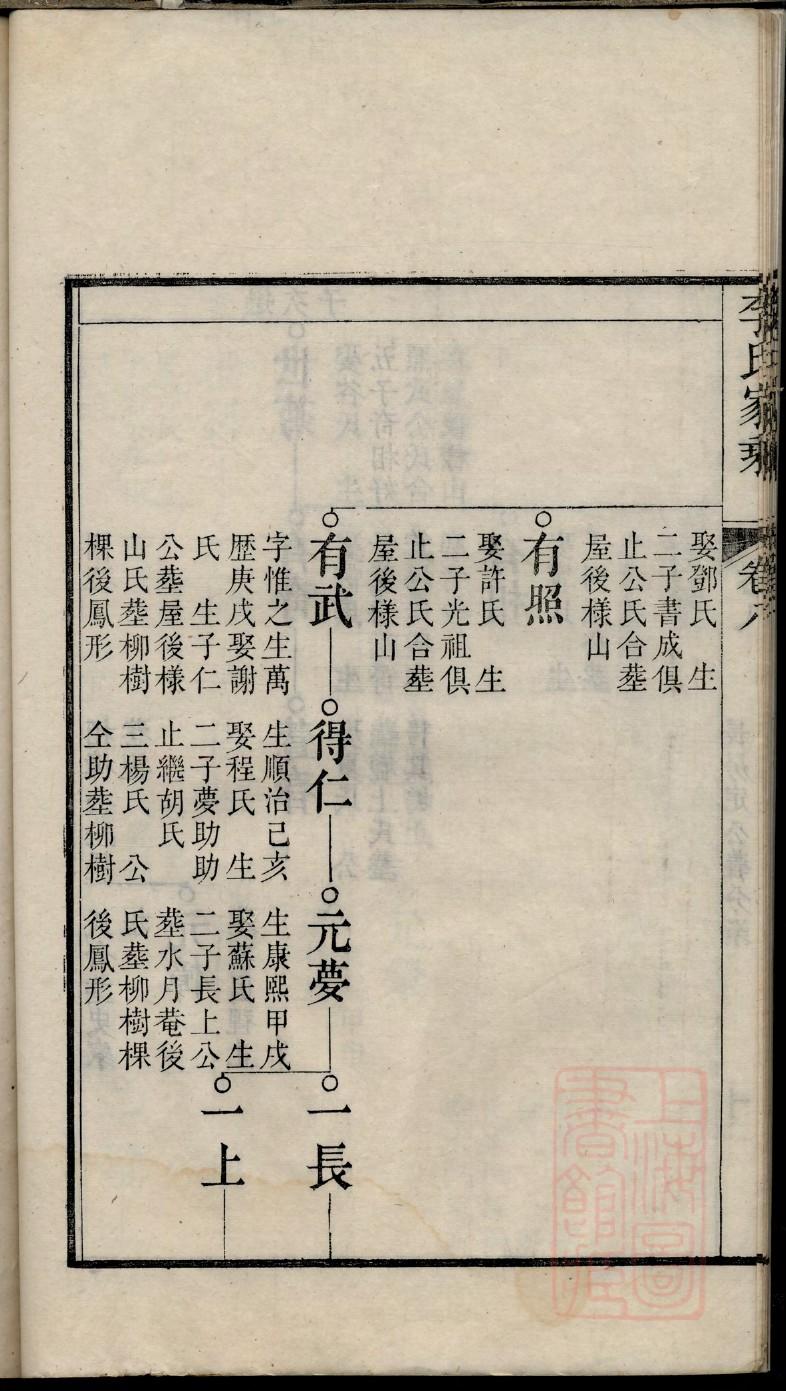 李氏家乘
卷八
娶鄧氏　生
二子書成俱
止公氏合塟
屋後様山
有照
娶許氏　生
二子光祖俱
止公氏合塟
屋後様山
有武
字惟之生萬
歷庚戌娶謝
氏　生子仁
公塟屋後様
山氏塟柳樹
棵後鳳形
得仁
生順治己亥
娶程氏　生
二子夢助助
止繼胡氏
三楊氏　公
仝助塟柳樹
後鳳形
元夢
生康熙甲戌
娶蘇氏　生
二子長上公
塟水月菴後
氏塟柳樹棵
一長
一上
上海圖
書館藏